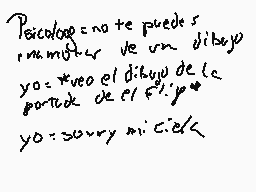 Psicologo = no te puedes
enamorar de un dibujo
yo = *veo el dibujo de la
portada de el Flip*
yo = sorry mi ciela